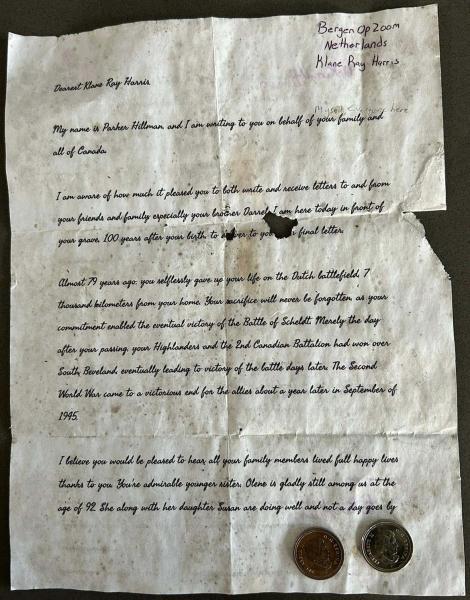 Bergen Op Zoom
Netherlands
Klane Ray Harris
Dearest Klane Ray Harris
here
My name is Parker Hillman, and I am writing to you on behalf of your family and
all of Canada.
I am aware of how much it pleased you to both write and receive letters to and from
your friends and family especially your brother Darrel. I am here today in front of
your grave, 100 years after your birth, to to final letter.
Almost 79 years ago, you selflessly gave up your life on the Dutch battlefield, 7
thousand kilometers from your home. Your sacrifice will never be forgotten, as your
commitment enabled the eventual victory of the Battle of Scheldt. Merely the day
after your passing, your Highlanders and the 2nd Canadian Battalion had won over
South Beveland, eventually leading to victory of the battle days later. The Second
World War came to a victorious end for the allies about a year later in September of
1945.
I believe you would be pleased to hear, all your family members lived full happy lives
thanks to you. You're admirable younger sister, Olene is gladly still among us at the
age of 92. She along with her daughter Susan are doing well and not a day goes by